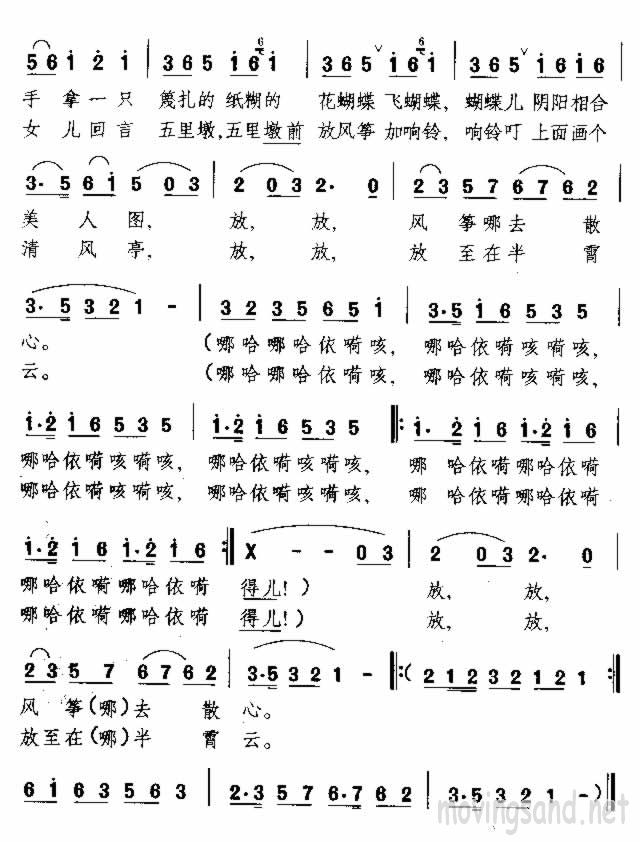 5 6 i 2 i | 3 6 5 i 6 i | 3 6 5 ˅ i 6 i | 3 6 5 ˅ i 6 i 6
手 拿 一 只 篾扎的 纸糊的 花蝴蝶 飞蝴蝶, 蝴蝶儿 阴阳相合
女 儿 回 言 五里墩,五里墩前 放风筝 加响铃, 响铃叮 上面画个
3· 5 6 i 5 0 3 | 2 0 3 2· 0 | 2 3 5 7 6 7 6 2
美 人 图, 放, 放, 风 筝哪去 散
清 风 亭, 放, 放, 放 至在半 霄
3· 5 3 2 1 - | 3 2 3 5 6 5 i | 2·5 i 6 5 3 5
心。 (哪哈哪哈依嗬咳, 哪哈依嗬咳嗬咳,
云。 (哪哈哪哈依嗬咳, 哪哈依嗬咳嗬咳,
i·2 i 6 5 3 5 | i·2 i 6 5 3 5 |: i· 2 i 6 i·2 i 6
哪哈依嗬咳嗬咳, 哪哈依嗬咳嗬咳, 哪 哈依嗬哪哈依嗬
哪哈依嗬咳嗬咳, 哪哈依嗬咳嗬咳, 哪 哈依嗬哪哈依嗬
i·2 i 6 i·2 i 6 :| X - - 0 3 | 2 0 3 2· 0
哪哈依嗬哪哈依嗬 得儿!) 放, 放,
哪哈依嗬哪哈依嗬 得儿!) 放, 放,
2 3 5 7 6 7 6 2 | 3·5 3 2 1 - |:( 2 1 2 3 2 1 2 1 :|
风 筝(哪)去 散 心。
放至在(哪)半 霄 云。
6 i 6 3 5 6 3 | 2·3 5 7 6·7 6 2 | 3·5 3 2 1 - )||
movingsand.net